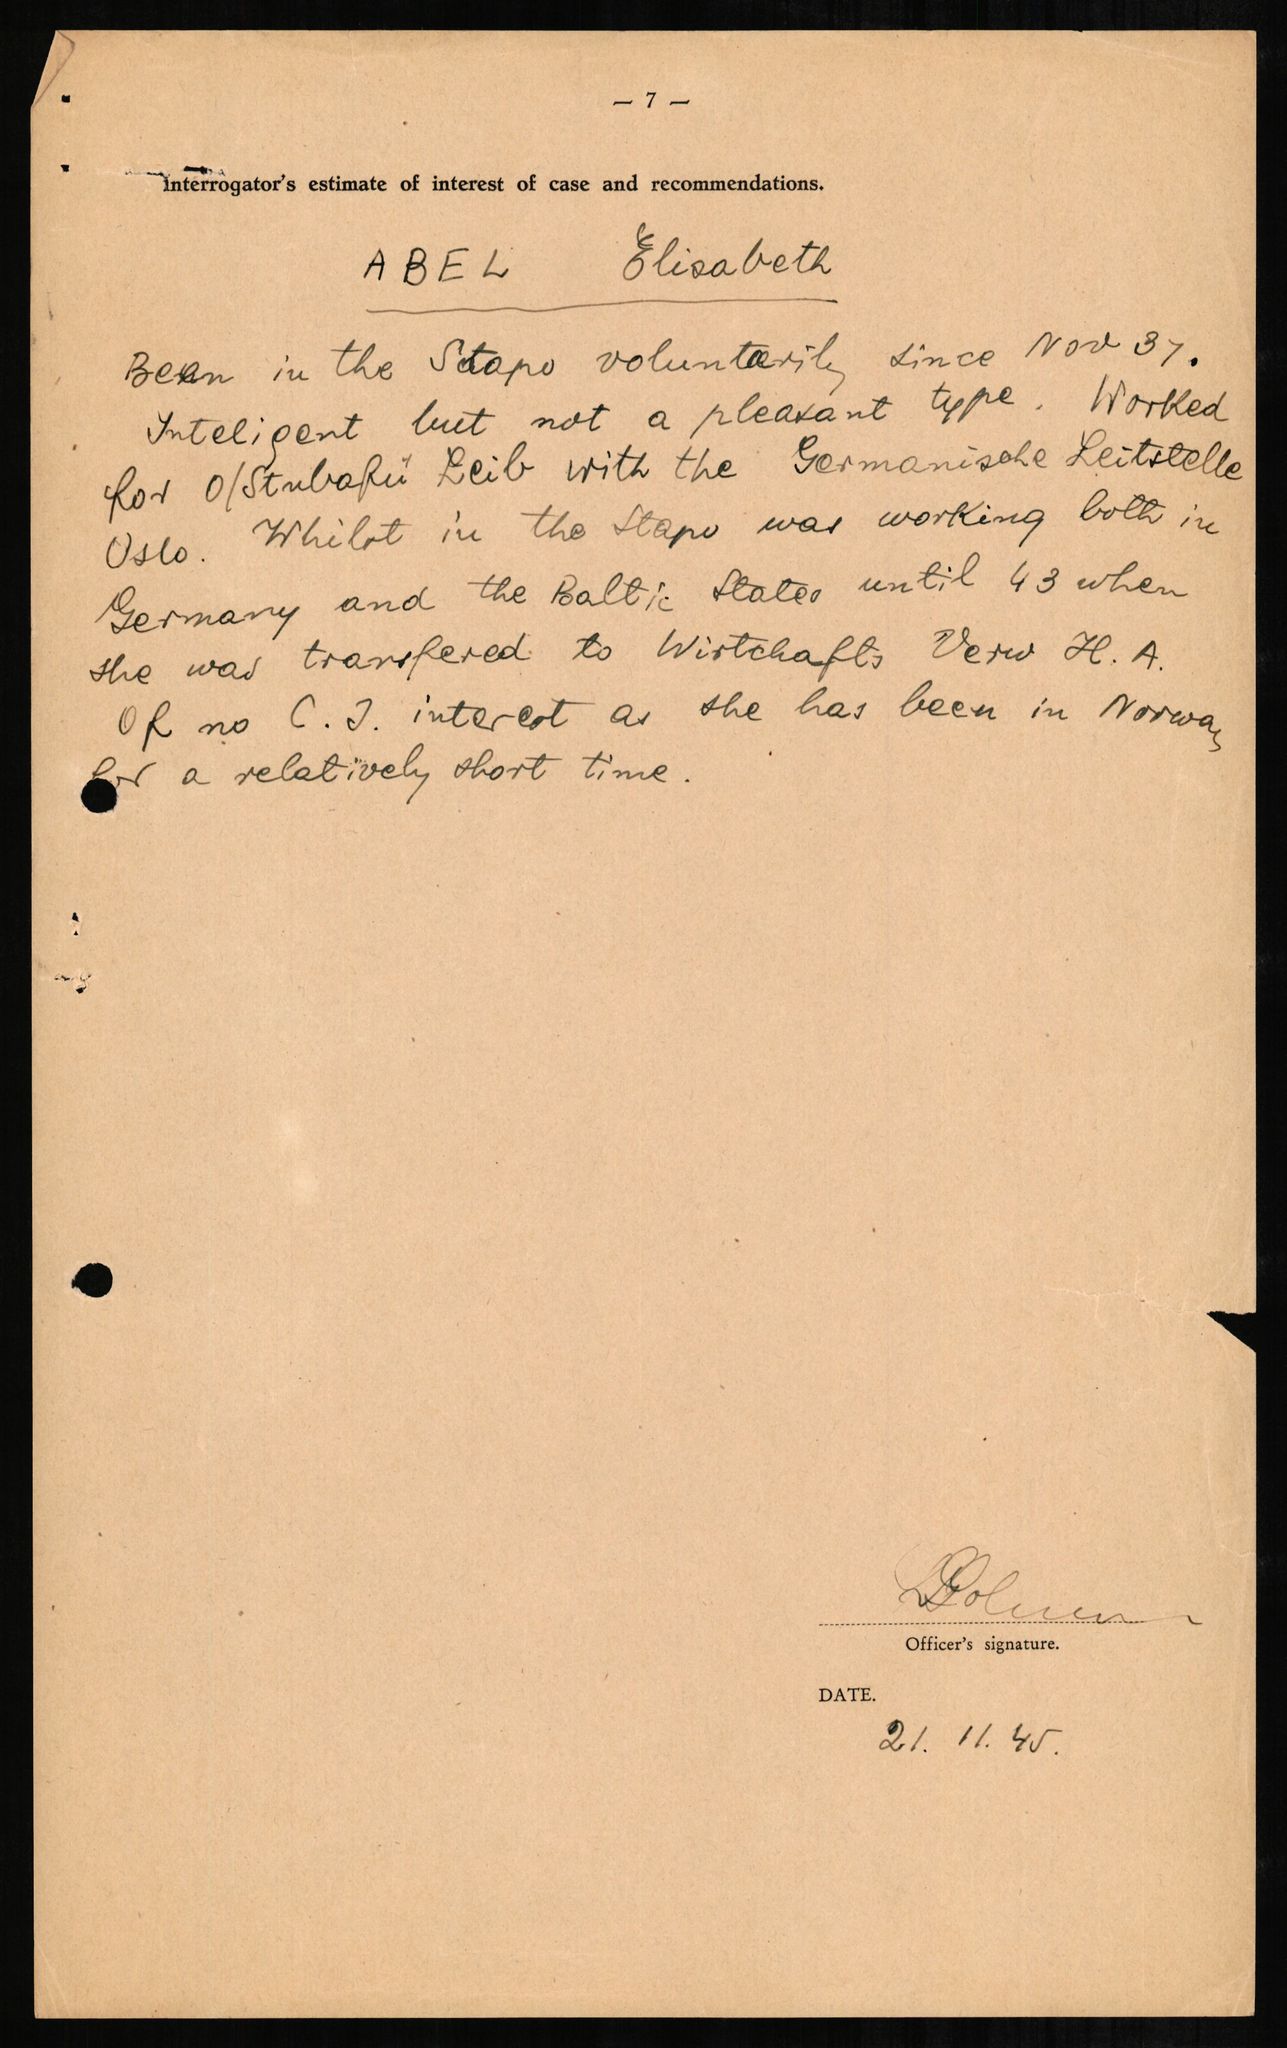 — 7 —
Interrogator's estimate of interest of case and recommendations.
ABEL Elisabeth
Been in the Stapo voluntarily since Nov 37.
Inteligent but not a pleasant type. Worked
for O/Stubafü Leib with the Germanische Leitstelle
Oslo. Whilst in the Stapo was working both in
Germany and the Baltic States until 43 when
she was transfered to Wirtchafts Verw H. A.
Of no C. I. interest as she has been in Norway
for a relatively short time.
Officer's signature.
DATE.
21. 11. 45.